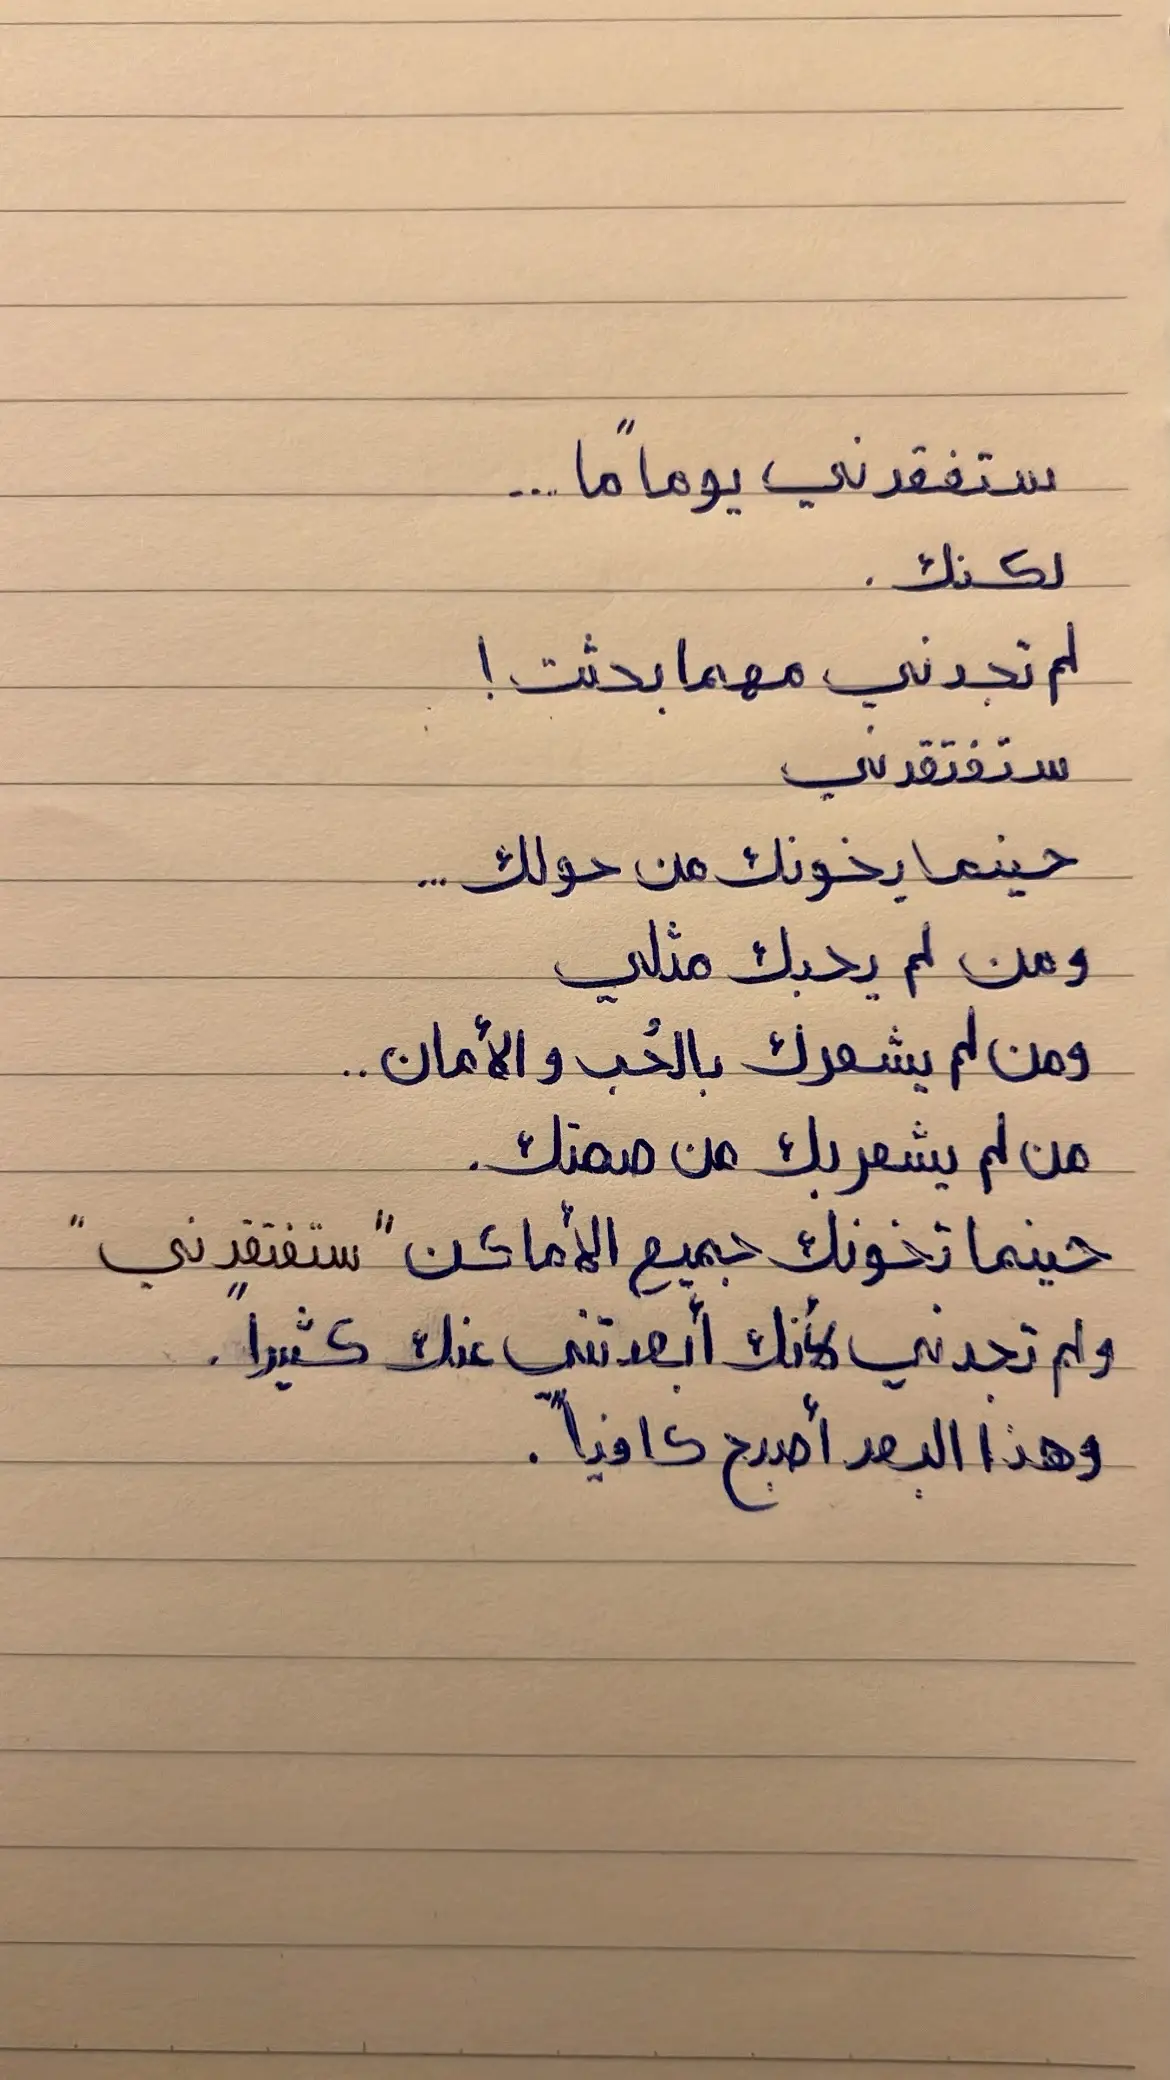 ستفقدني يوماً ما ...
لكنك .
لم تجدني مهما بحثت !
ستفتقدني
حينما يخونك من حولك ...
ومن لم يحبك مثلي
ومن لم يشعرك بالحُب والأمان ..
من لم يشعر بك من صمتك .
حينما تخونك جميع الأماكن "ستفتقدني"
ولم تجدني لأنك أبعدتني عنك كثيراً .
وهذا البعد أصبح كافياً .